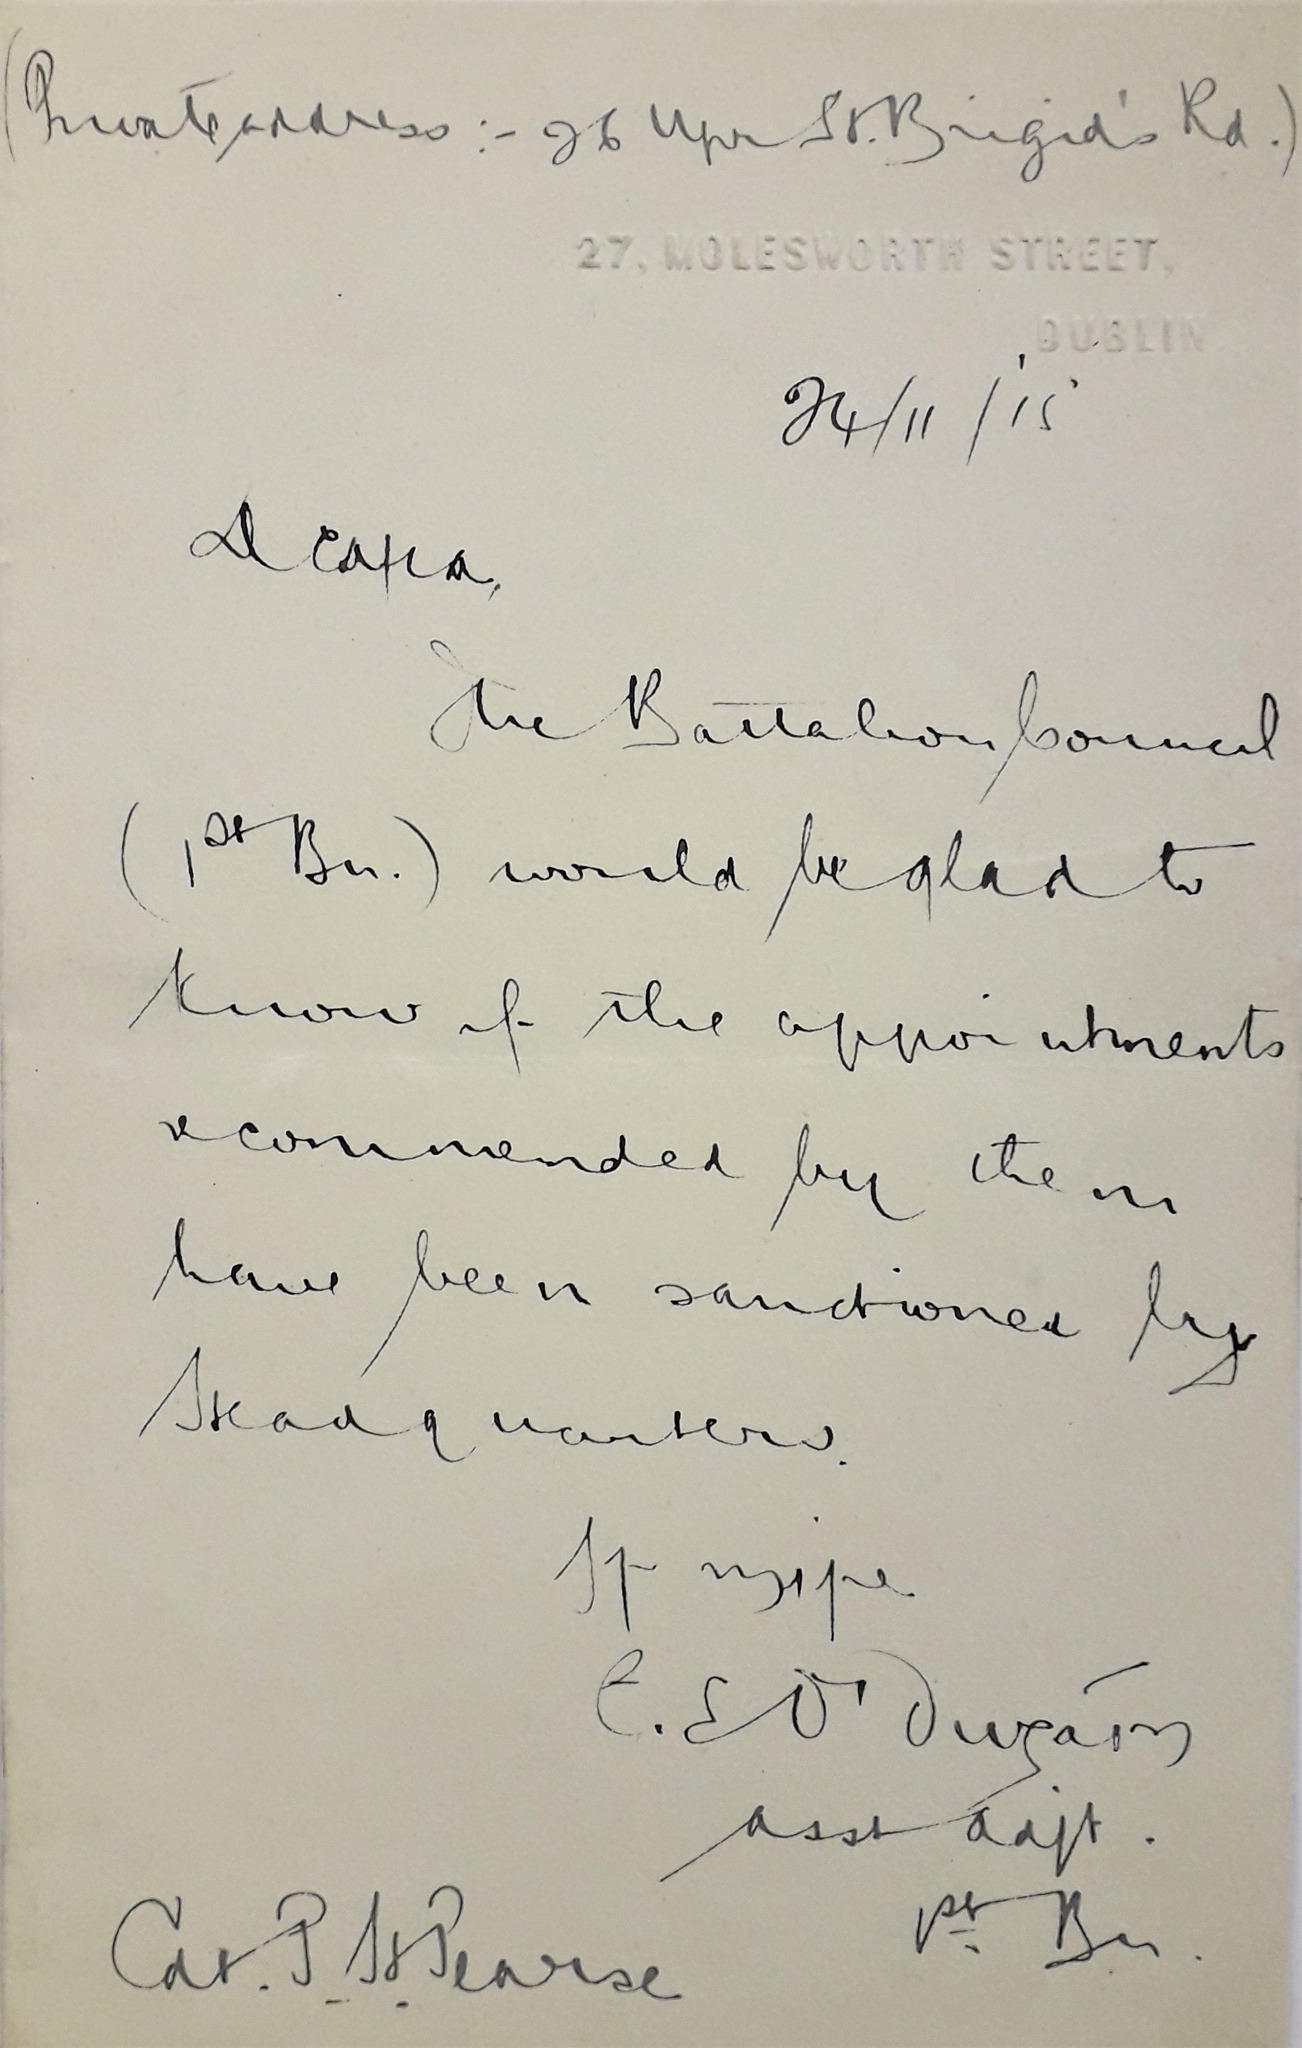 (Private address :- 26 Upr St. Brigid's Rd.)
27, MOLESWORTH STREET,
DUBLIN
24/11/'15
A Ċara,
The Battalion Council
(1st Bn.) would be glad to
know if the appointments
recommended by them
have been sanctioned by
Headquarters.
Is mise
E. S. Ó Dugáin
asst adjt.
1st Bn.
Cdt. P. H. Pearse